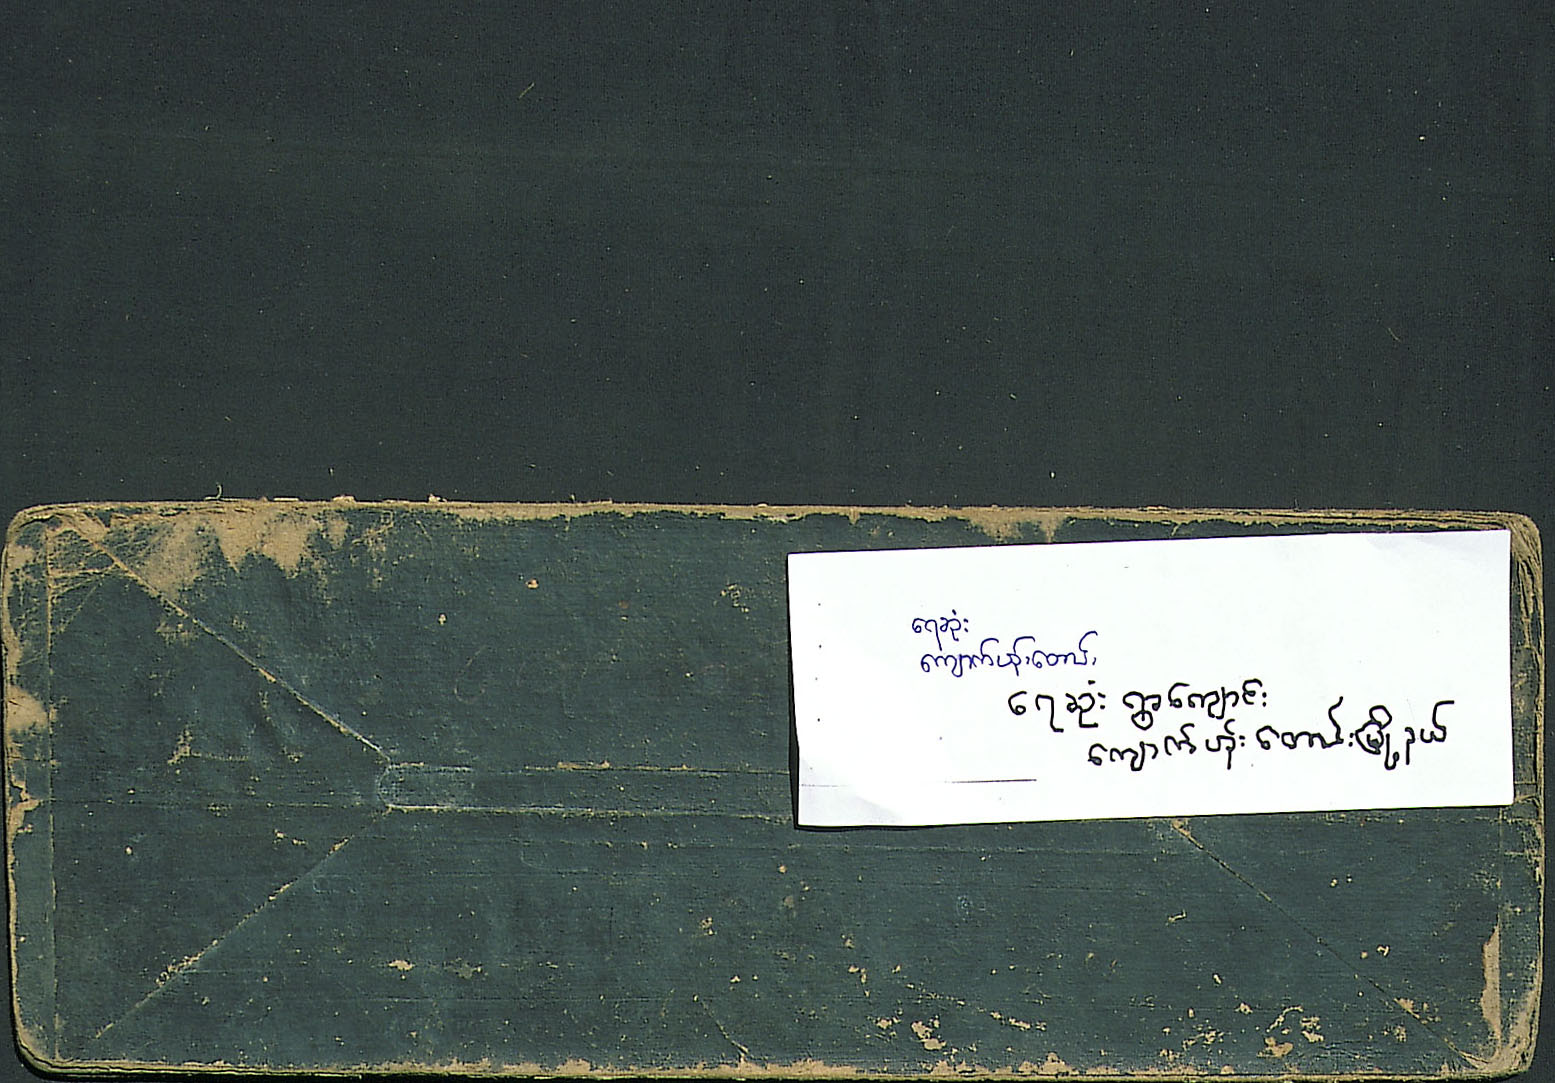 ရေဆုံး
ကျောက်ဟိုးတောင်း
ရေဆုံး ရွာကျောင်း
ကျောက်ဟိုး တောင်းမြို့နယ်